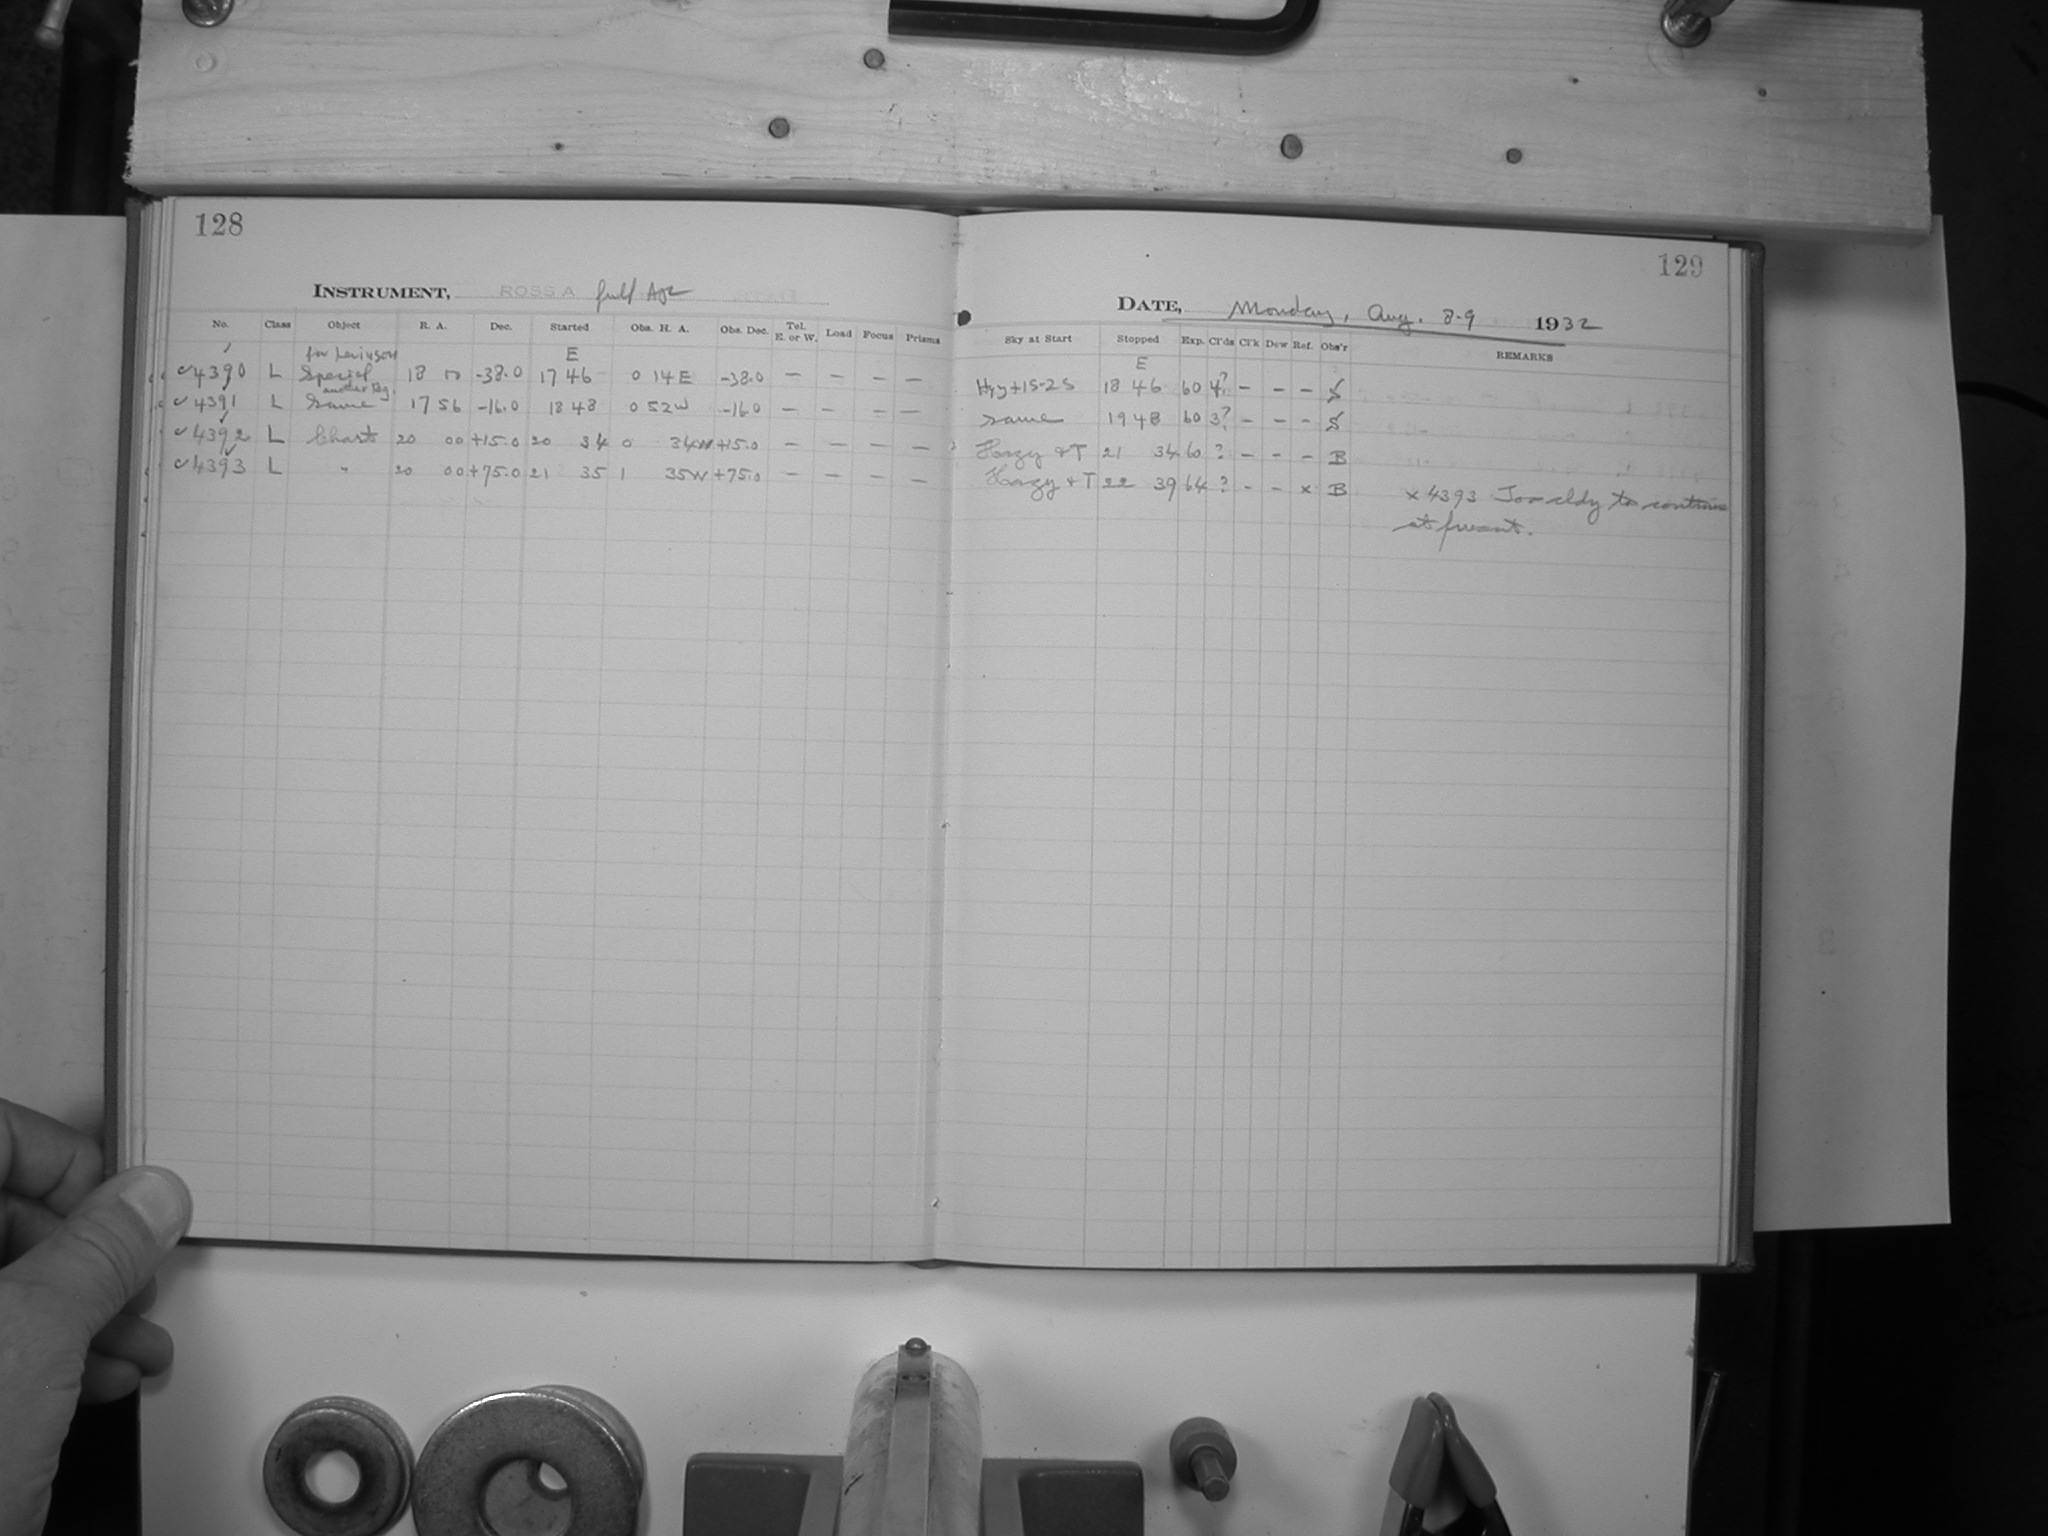 128
129
INSTRUMENT, ROSS A full Apr
DATE, Monday, Aug. 8-9 1932
No. Class Object R. A. Dec. Started Obs. H. A. Obs. Dec. Tel. E. or W. Load Focus Prisms Sky at Start Stopped Exp. Cl'ds Cl'k Dew Ref. Obs'r REMARKS
for E E
4390 L Special 18 -38.0 17 46 0 14 E -38.0 — — — — Hzy+1S-2S 18 46 60 4? - - - S
another Rg.
4391 L Same 17 56 -16.0 18 48 0 52W -16.0 — — — — same 19 48 60 3? - - - S
4392 L Chart 20 00 +15.0 20 34 0 34W +15.0 — — — — Hazy + T 21 34 60 ? - - - B
4393 L " 20 00 +75.0 21 35 1 35W +75.0 — — — — Hazy + T 22 39 64 ? - - x B x 4393 Too cldy to continue
at present.